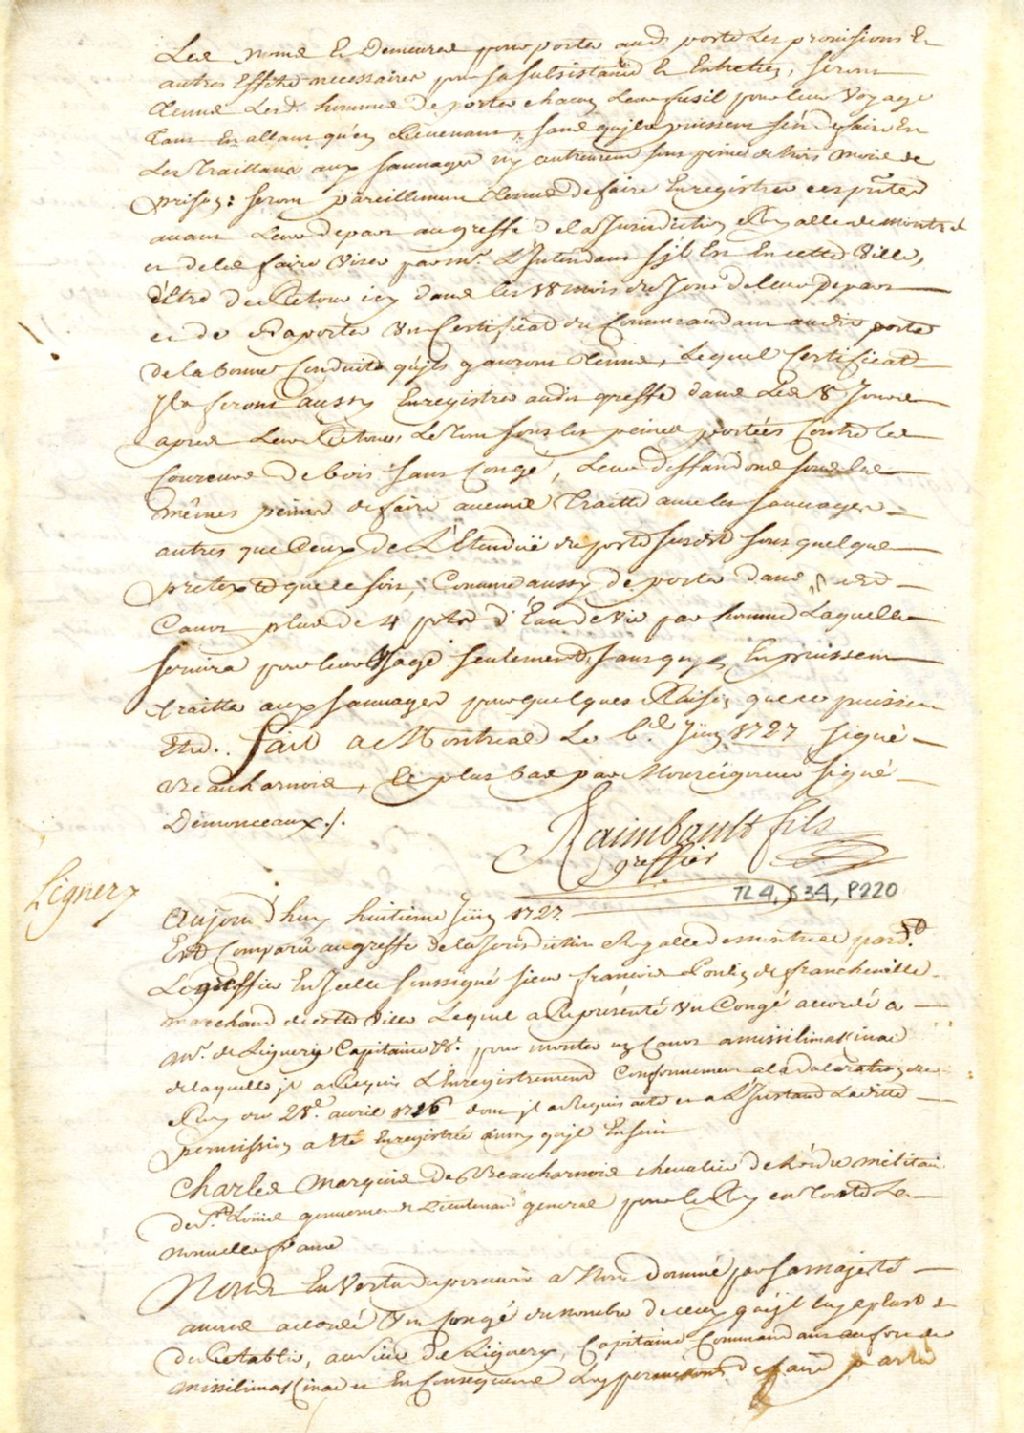 Les noms et Demeures pour porter aud. poste Les provisions Et
autres Effets necessaires pour sa subsistance et Entretien, seront
Tenus Lesd. hommes de porter chacun Leur fusil pour leur Voyage
Tant En allant qu'en Revenant, sans qu'ils puissent s'en defaire En
Les Traittans aux sauvages ny autrement sous peine de trois mois de
prison: seront pareillement Tenus de faire Enregistrer ces pñtes
avant Leur depart au greffe de la Jurisdiction Royalle de montreal
et de les faire Viser par Mr. L'Intendant s'jl Est En cette Ville,
d'Etre de Retour icy dans les 18 mois du Jour de leur Depart
et de Raporter Un Certificat du Commandant audit poste
de la bonne Conduite qu'jls y auront Tenue, Lequel Certificat
Jls feront aussy Enregistrer audit greffe dans Les 8 Jours
apres Leur Retour, Le Tout sous les peines portées Contre les
Coureurs de bois sans Congé, Leur deffandons sous les
mêmes peines de faire aucune Traitte avec les sauvages
autres que Ceux de L'Etendüe du poste susdit sous quelque
pretexte que ce soit, Comme aussy de porter dans
Canot plus de 4 pots d'Eau de Vie par homme Laquelle
servira pour leur Usage seulement, sans qu'jls En puissent
traitter aux sauvages pour quelques Raison que ce puisse
Etre. Fait a Montreal Le 6.e Juin 1727 signé
Beauharnois, Et plus bas par Monseigneur signé
Demonceaux./.
Raimbault fils
greffier
TL4, S34, P220
Lignery
Aujourd'huy huitieme Juin 1727
Est Comparu au greffe de la Jurisdiction Royalle de montreal pard.t
Le greffier En Jcelle soussigné sieur francois Poulin de francheville
marchand de cette Ville Lequel a Representé Un Congé accordé a
Mr. de Lignery Capitaine &c. pour monter un Canot a missilimakinac
de laquelle jl a Requis L'Enregistrement Conformement a la declaration du
Roy du 28.e avril 1726 dont jl a Requis acte et a L'Instant Ladite
permission a Eté Enregistrée ainsy qu'jl Ensuit
Charles Marquis de Beauharnois chevalier de L'ordre militaire
de St. Louis gouverneur Lieutenant general pour le Roy en Toute La
Nouvelle france
Nous En Vertu du pouvoir a Nous donné par sa majesté
avons accordé Un Congé du nombre de ceux qu'jl luy a plust
de Retablir, au sieur de Lignery, Capitaine Commandant au fort de
missilimakinac et En Consequence Luy permettons de faire partir